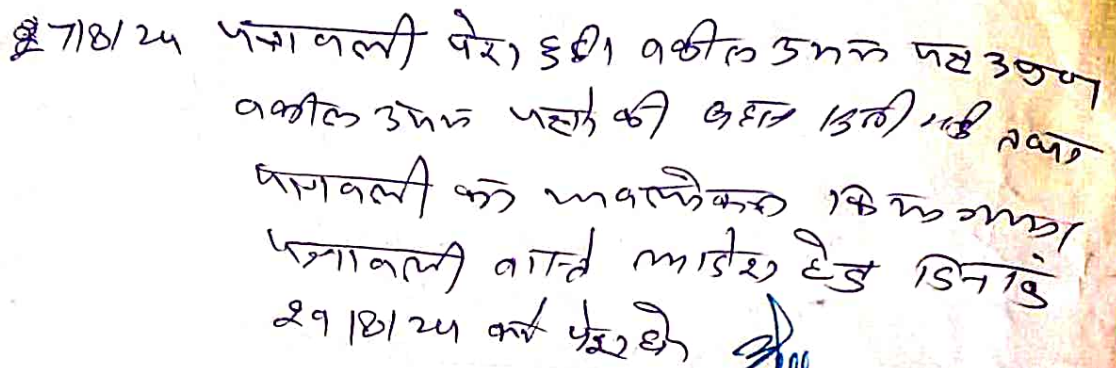 7/8/24 पत्रावली पेश हुई। वकील उभय पक्ष उप०
वकील उभय पक्षों की बहस सुनी गई तथा
पत्रावली का अवलोकन किया गया।
पत्रावली वास्ते आदेश हेतु दिनांक
29/8/24 को पेश हो